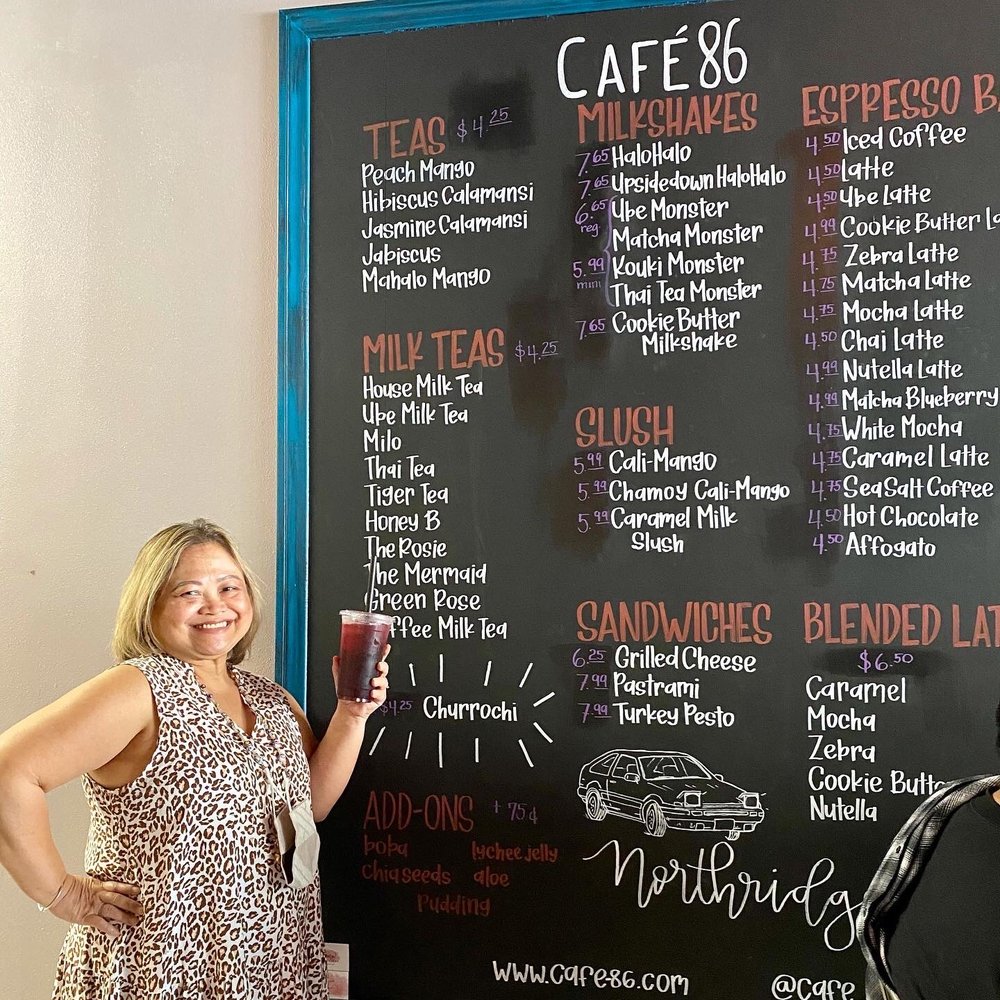 CAFÉ 86
TEAS $4.25
Peach Mango
Hibiscus Calamansi
Jasmine Calamansi
Jabiscus
Mahalo Mango
MILK TEAS $4.25
House Milk Tea
Ube Milk Tea
Milo
Thai Tea
Tiger Tea
Honey B
The Rosie
The Mermaid
Green Rose
Coffee Milk Tea
$4.25 Churrochi
ADD-ONS +75¢
boba lychee jelly
Chia seeds aloe
Pudding
MILKSHAKES
7.65 HaloHalo
7.65 UpsidedownHaloHalo
6.65 Ube Monster
reg Matcha Monster
5.99 Kouki Monster
mini Thai Tea Monster
7.65 Cookie Butter
Milkshake
SLUSH
5.99 Cali-Mango
5.99 Chamoy Cali-Mango
5.99 Caramel Milk
Slush
SANDWICHES
6.25 Grilled Cheese
7.99 Pastrami
7.99 Turkey Pesto
Northridg
ESPRESSO B
4.50 Iced Coffee
4.50 Latte
4.50 Ube Latte
4.99 Cookie Butter La
4.75 Zebra Latte
4.75 Matcha Latte
4.75 Mocha Latte
4.50 Chai Latte
4.99 Nutella Latte
4.99 Matcha Blueberry
4.75 White Mocha
4.75 Caramel Latte
4.75 Sea Salt Coffee
4.50 Hot Chocolate
4.50 Affogato
BLENDED LAT
$6.50
Caramel
Mocha
Zebra
Cookie Butt
Nutella
www.cafe86.com @cafe